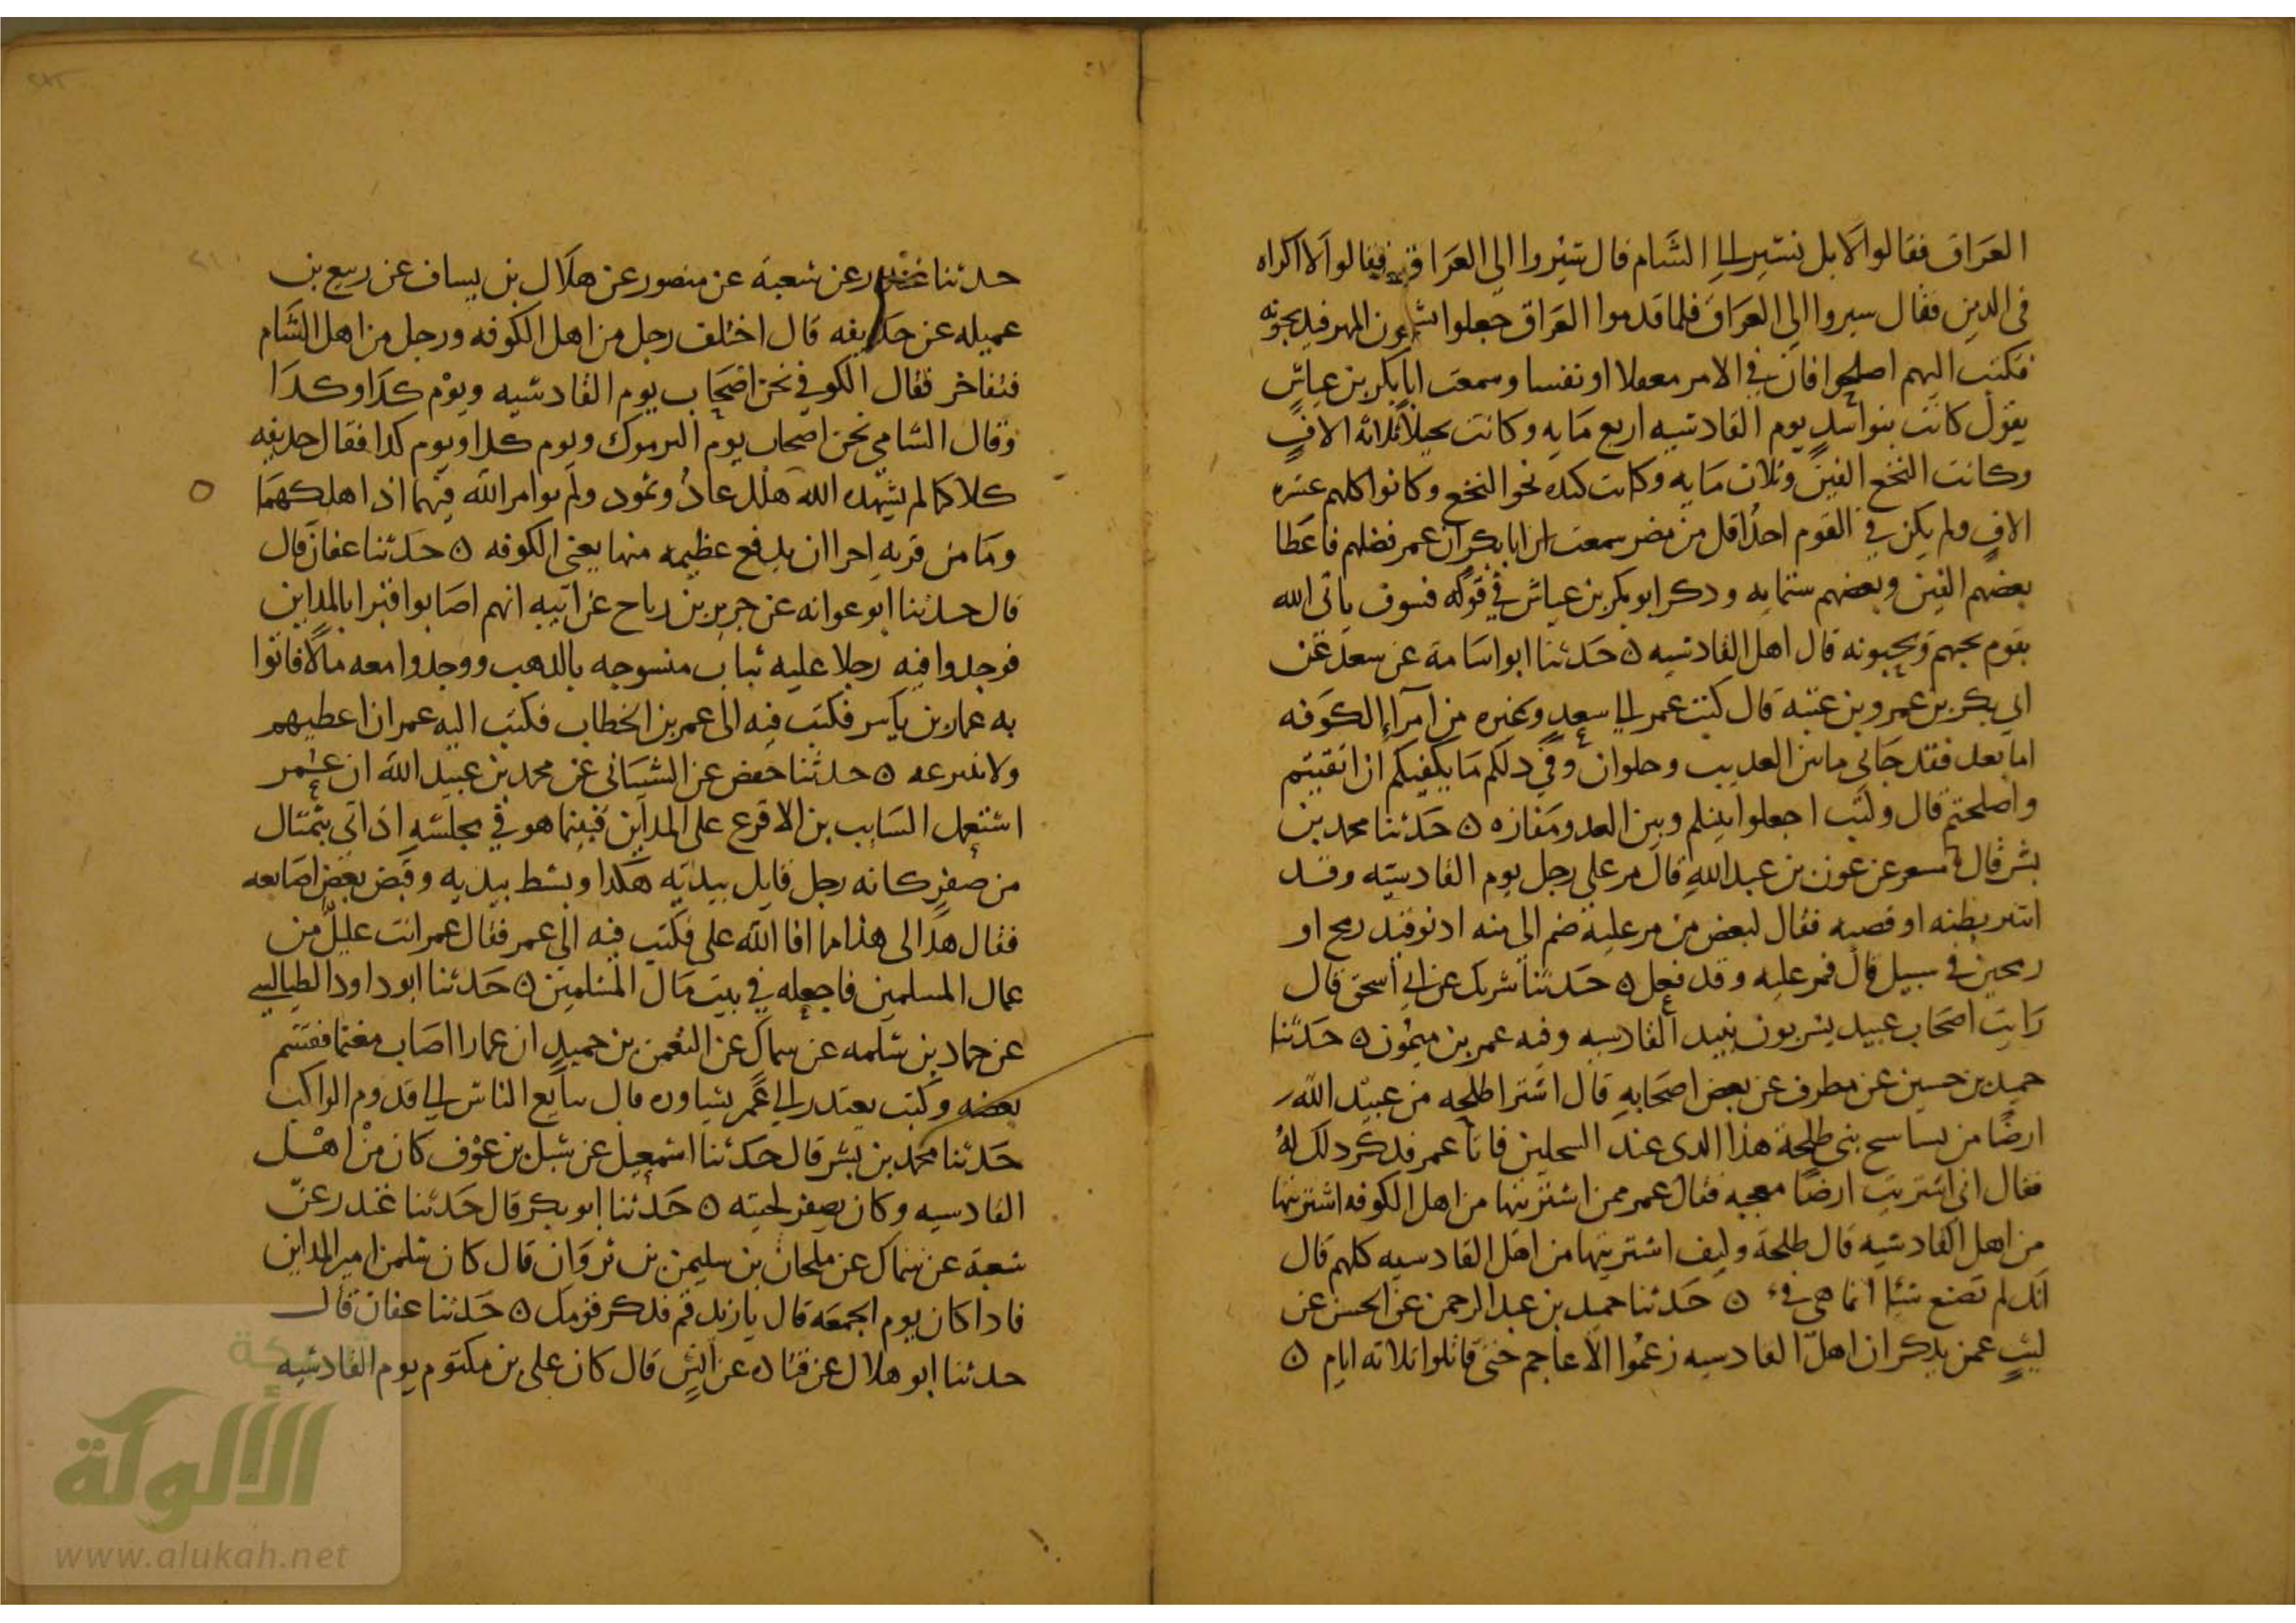 العراق فقالوا لا بل نسير الى الشام قال سيروا الى العراق فقالوا لا اكراه
في الدين فقال سيروا الى العراق فلما قدموا العراق جعلوا المهر فيذبحونه
فكتب اليهم اصلحوا فان في الامر معقلا او نفسا وسمعت ابا بكر بن عياش
يقول كانت بنو اسد يوم القادسيه اربع مايه وكانت بجيلة ثلاثه الاف
وكانت النخع الفين وثلاث مايه وكانت كنده نحو النخع وكانوا كلهم عشره
الاف ولم يكن في القوم احد اقل من مضر سمعت ابا بكر ان عمر فضلهم فاعطا
بعضهم الفين وبعضهم ستمايه وذكر ابو بكر بن عياش في قوله فسوف ياتي الله
بقوم يحبهم ويحبونه قال اهل القادسيه ه حدثنا ابو اسامة عن سعد عن
ابي بكر بن عمرو بن عتبة قال كتب عمر الى سعد وغيره من امراء الكوفه
اما بعد فقد جاني ما بين العذيب وحلوان وفي ذلكم ما يكفيكم ان اتقيتم
واصلحتم قال وكتب اجعلوا بينكم وبين العدو مفازه ه حدثنا محمد بن
بشر قال مسعر عن عون بن عبد الله قال مر على رجل يوم القادسيه وقد
انتثر بطنه او قصبه فقال لبعض من مر عليه ضم الي منه ادنو قيد رمح او
رمحين في سبيل قال فمر عليه وقد فعل ه حدثنا شريك عن ابي اسحق قال
رايت اصحاب عبيد يشربون نبيذ القادسيه وفيه عمر بن ميمون ه حدثنا
حميد بن حسين عن مطرف عن بعض اصحابه قال اشترا طلحه من عبيد الله
ارضا من نساسح بني طلحة هذا الذي عند السحلين فاتا عمر فذكر ذلك له
فقال اني اشتريت ارضا معجبه فقال عمر ممن اشتريتها من اهل الكوفه اشتريتها
من اهل القادسيه قال طلحة وكيف اشتريتها من اهل القادسيه كلهم قال
انك لم تصنع شيا انما هي فيء ه حدثنا حميد بن عبد الرحمن عن الحسن عن
ليث عمن يذكر ان اهل القادسيه زعموا الاعاجم حتى قاتلوا ثلاثه ايام ه
حدثنا غندر عن شعبة عن منصور عن هلال بن يساف عن ربيع بن
عميله عن حذيفه قال اختلف رجل من اهل الكوفه ورجل من اهل الشام
فتفاخر فقال الكوفي نحن اصحاب يوم القادسيه ويوم كذا وكذا
وقال الشامي نحن اصحاب يوم اليرموك ويوم كذا ويوم كذا فقال حذيفه
كلاكما لم يشهده الله هلك عاد وثمود ولم يوامر الله فيهما اذ اهلكهما
وما من قريه احرا ان يدفع عظيمه منها يعني الكوفه ه حدثنا عفان قال
قال حدثنا ابو عوانه عن جرير بن رباح عن ابيه انهم اصابوا قبرا بالمداين
فوجدوا فيه رجلا عليه ثياب منسوجه بالذهب ووجدوا معه مالا فاتوا
به عمار بن ياسر فكتب فيه الى عمر بن الخطاب فكتب اليه عمر ان اعطيهم
ولا تنزعه ه حدثنا حفص عن الشيباني عن محمد بن عبيد الله ان عمر
استعمل السايب بن الاقرع على المداين فبينما هو في مجلسه اذ اتي بتمثال
من صفر كانه رجل قايل بيديه هكذا وبسط بيديه وقبض بعض اصابعه
فقال هذا لي هذا مما افا الله علي فكتب فيه الى عمر فقال عمر انت عامل من
عمال المسلمين فاجعله في بيت مال المسلمين ه حدثنا ابو داود الطيالسي
عن حماد بن سلمه عن سماك عن النعمن بن حميد ان عمارا اصاب مغنما فقسم
بعضه وكتب يعتذر الى عمر يشاوره قال يبايع الناس الى قدوم الراكب
حدثنا محمد بن بشر قال حدثنا اسمعيل عن شبل بن عوف كان من اهل
القادسيه وكان يصفر لحيته ه حدثنا ابو بكر قال حدثنا غندر عن
شعبة عن سماك عن ملحان بن سليمن بن ثروان قال كان سلمن امير المداين
فاذا كان يوم الجمعه قال يا زيد قم فذكر قومك ه حدثنا عفان قال
حدثنا ابو هلال عن قتاده عن انس قال كان على بن مكتوم يوم القادسيه
الألوكة
www.alukah.net